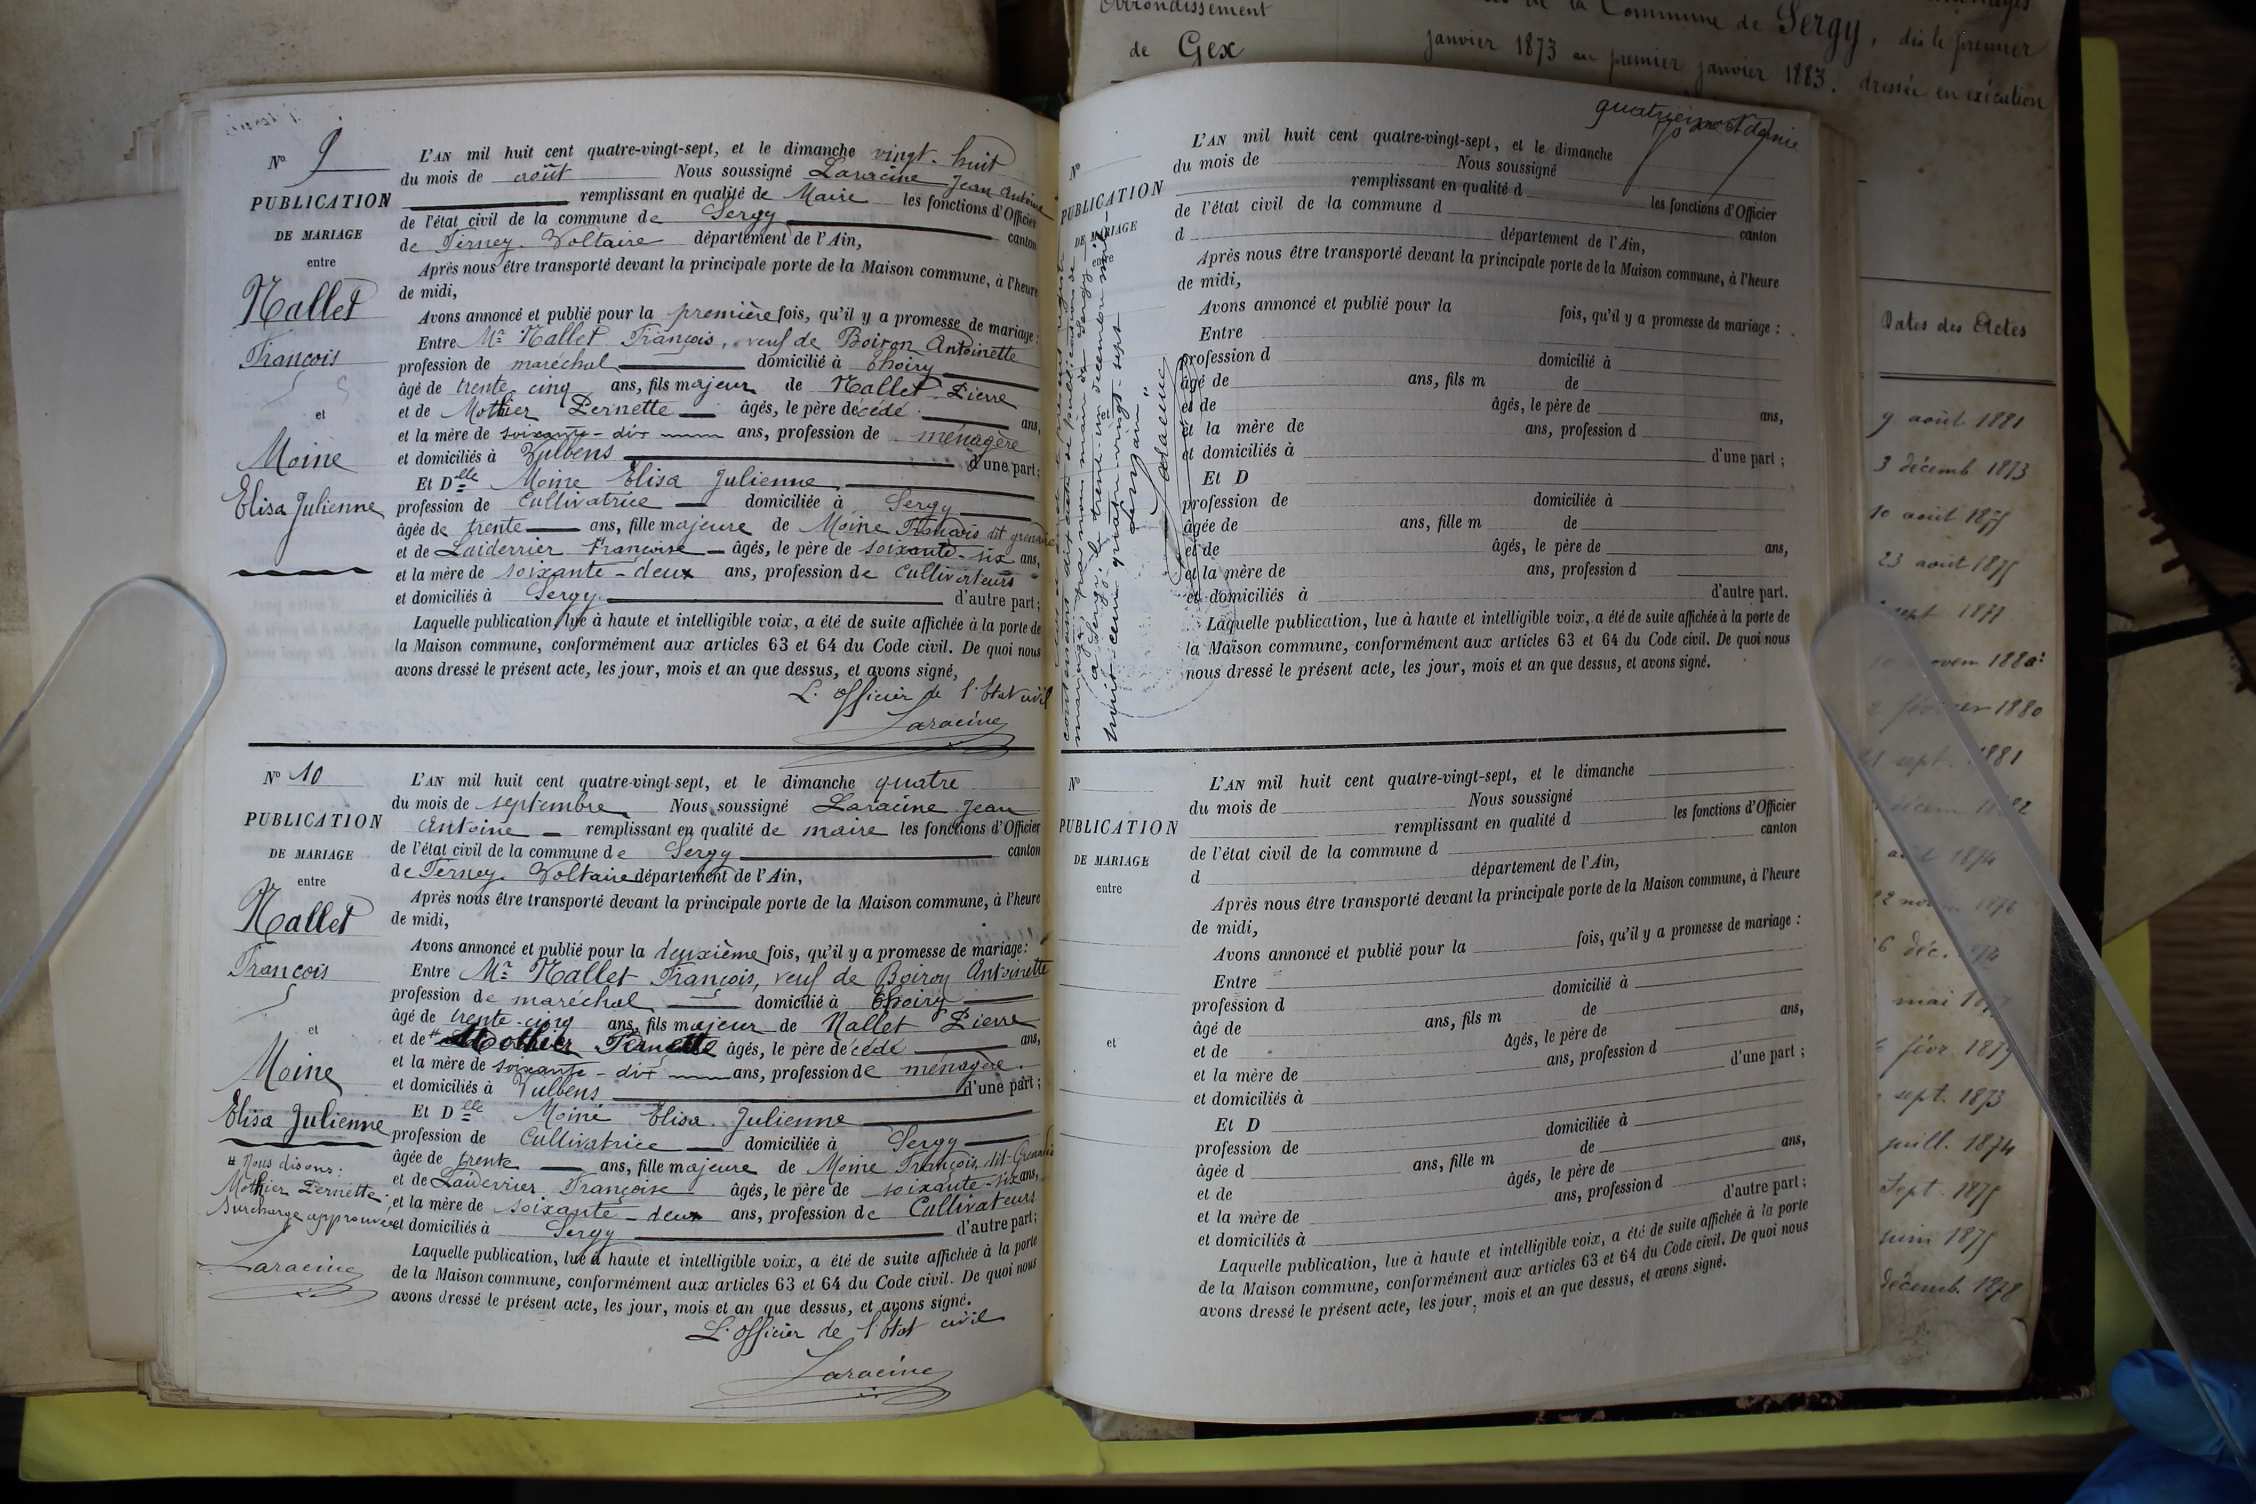 Nº 9
PUBLICATION
DE MARIAGE
entre
Nallet
François
et
Moine
Elisa Julienne
L'AN mil huit cent quatre-vingt-sept, et le dimanche vingt-huit
du mois de août Nous soussigné Laracine Jean Antoine
remplissant en qualité de Maire les fonctions d'Officier
de l'état civil de la commune de Sergy canton
de Ferney-Voltaire département de l'Ain,
Après nous être transporté devant la principale porte de la Maison commune, à l'heure
de midi,
Avons annoncé et publié pour la première fois, qu'il y a promesse de mariage :
Entre Mr Nallet François, veuf de Boiron Antoinette
profession de maréchal domicilié à Thoiry
âgé de trente cinq ans, fils majeur de Nallet Pierre
et de Mothier Pernette âgés, le père décédé ans,
et la mère de soixante-dix ans, profession de ménagère
et domiciliés à Vulbens d'une part ;
Et Delle Moine Elisa Julienne
profession de Cultivatrice domiciliée à Sergy
âgée de trente ans, fille majeure de Moine François dit
et de Laiderrier Françoise âgés, le père de soixante-six ans,
et la mère de soixante-deux ans, profession de Cultivateurs
et domiciliés à Sergy d'autre part ;
Laquelle publication, lue à haute et intelligible voix, a été de suite affichée à la porte de
la Maison commune, conformément aux articles 63 et 64 du Code civil. De quoi nous
avons dressé le présent acte, les jour, mois et an que dessus, et avons signé,
L'officier de l'état civil
Laracine
Nº 10
PUBLICATION
DE MARIAGE
entre
Nallet
François
et
Moine
Elisa Julienne
# Nous disons :
Mothier Pernette
Surcharge approuvée
Laracine
L'AN mil huit cent quatre-vingt-sept, et le dimanche quatre
du mois de septembre Nous soussigné Laracine Jean
Antoine remplissant en qualité de maire les fonctions d'Officier
de l'état civil de la commune de Sergy canton
de Ferney-Voltaire département de l'Ain,
Après nous être transporté devant la principale porte de la Maison commune, à l'heure
de midi,
Avons annoncé et publié pour la deuxième fois, qu'il y a promesse de mariage :
Entre Mr Nallet François, veuf de Boiron Antoinette
profession de maréchal domicilié à Thoiry
âgé de trente-cinq ans, fils majeur de Nallet Pierre
et de # Mothier Pernette âgés, le père décédé ans,
et la mère de soixante-dix ans, profession de ménagère.
et domiciliés à Vulbens d'une part ;
Et Delle Moine Elisa Julienne
profession de Cultivatrice domiciliée à Sergy
âgée de trente ans, fille majeure de Moine François, dit
et de Laiderrier Françoise âgés, le père de soixante-six ans,
et la mère de soixante-deux ans, profession de Cultivateurs
et domiciliés à Sergy d'autre part ;
Laquelle publication, lue à haute et intelligible voix, a été de suite affichée à la porte
de la Maison commune, conformément aux articles 63 et 64 du Code civil. De quoi nous
avons dressé le présent acte, les jour, mois et an que dessus, et avons signé.
L'officier de l'état civil
Laracine
quatrième et
Nº
PUBLICATION
DE MARIAGE
entre
et
L'AN mil huit cent quatre-vingt-sept, et le dimanche
du mois de Nous soussigné
remplissant en qualité d les fonctions d'Officier
de l'état civil de la commune d canton
d département de l'Ain,
Après nous être transporté devant la principale porte de la Maison commune, à l'heure
de midi,
Avons annoncé et publié pour la fois, qu'il y a promesse de mariage :
Entre
profession d domicilié à
âgé de ans, fils m de
et de âgés, le père de ans,
et la mère de ans, profession d
et domiciliés à d'une part ;
Et D
profession de domiciliée à
âgée de ans, fille m de
et de âgés, le père de ans,
et la mère de ans, profession d
et domiciliés à d'autre part.
Laquelle publication, lue à haute et intelligible voix, a été de suite affichée à la porte de
la Maison commune, conformément aux articles 63 et 64 du Code civil. De quoi nous
nous dressé le présent acte, les jour, mois et an que dessus, et avons signé.
maire de Sergy
à Sergy, le trente-un décembre mil
huit-cent quatre-vingt-sept
Laracine
Nº
PUBLICATION
DE MARIAGE
entre
et
L'AN mil huit cent quatre-vingt-sept, et le dimanche
du mois de Nous soussigné
remplissant en qualité d les fonctions d'Officier
de l'état civil de la commune d canton
d département de l'Ain,
Après nous être transporté devant la principale porte de la Maison commune, à l'heure
de midi,
Avons annoncé et publié pour la fois, qu'il y a promesse de mariage :
Entre
profession d domicilié à
âgé de ans, fils m de
et de âgés, le père de ans,
et la mère de ans, profession d
et domiciliés à d'une part ;
Et D
profession de domiciliée à
âgée d ans, fille m de
et de âgés, le père de ans,
et la mère de ans, profession d
et domiciliés à d'autre part ;
Laquelle publication, lue à haute et intelligible voix, a été de suite affichée à la porte
de la Maison commune, conformément aux articles 63 et 64 du Code civil. De quoi nous
avons dressé le présent acte, les jour, mois et an que dessus, et avons signé.
Arrondissement
de Gex
de la Commune de Sergy, dès le premier
janvier 1873 au premier janvier 1883. dressée en exécution
Dates des Actes
9 août 1881
3 décemb 1873
10 août 1875
23 août 1875
sept 1877
1880
février 1880
sept. 1881
1874
22
6 déc.
mai
févr. 1879
sept. 1873
juill. 1874
Sept. 1875
juin 1875
décemb. 1878